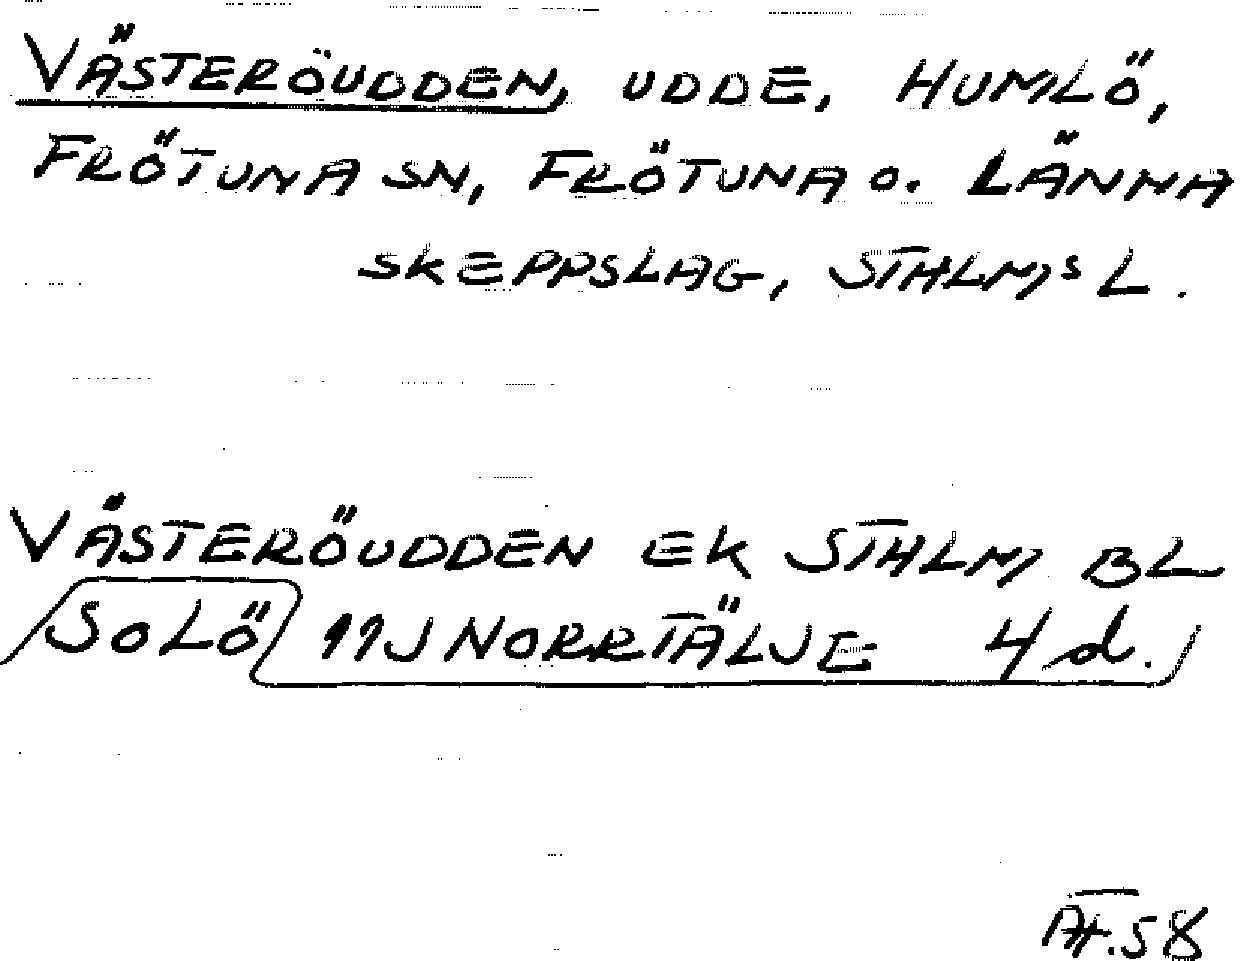 VÄSTERÖUDDEN, UDDE, HUMLÖ,
FRÖTUNA SN, FRÖTUNA O. LÄNNA
SKEPPSLAG, STHLMS L.
VÄSTERÖUDDEN EK STHLM BL
SOLÖ 11J NORRTÄLJE 4d.
58